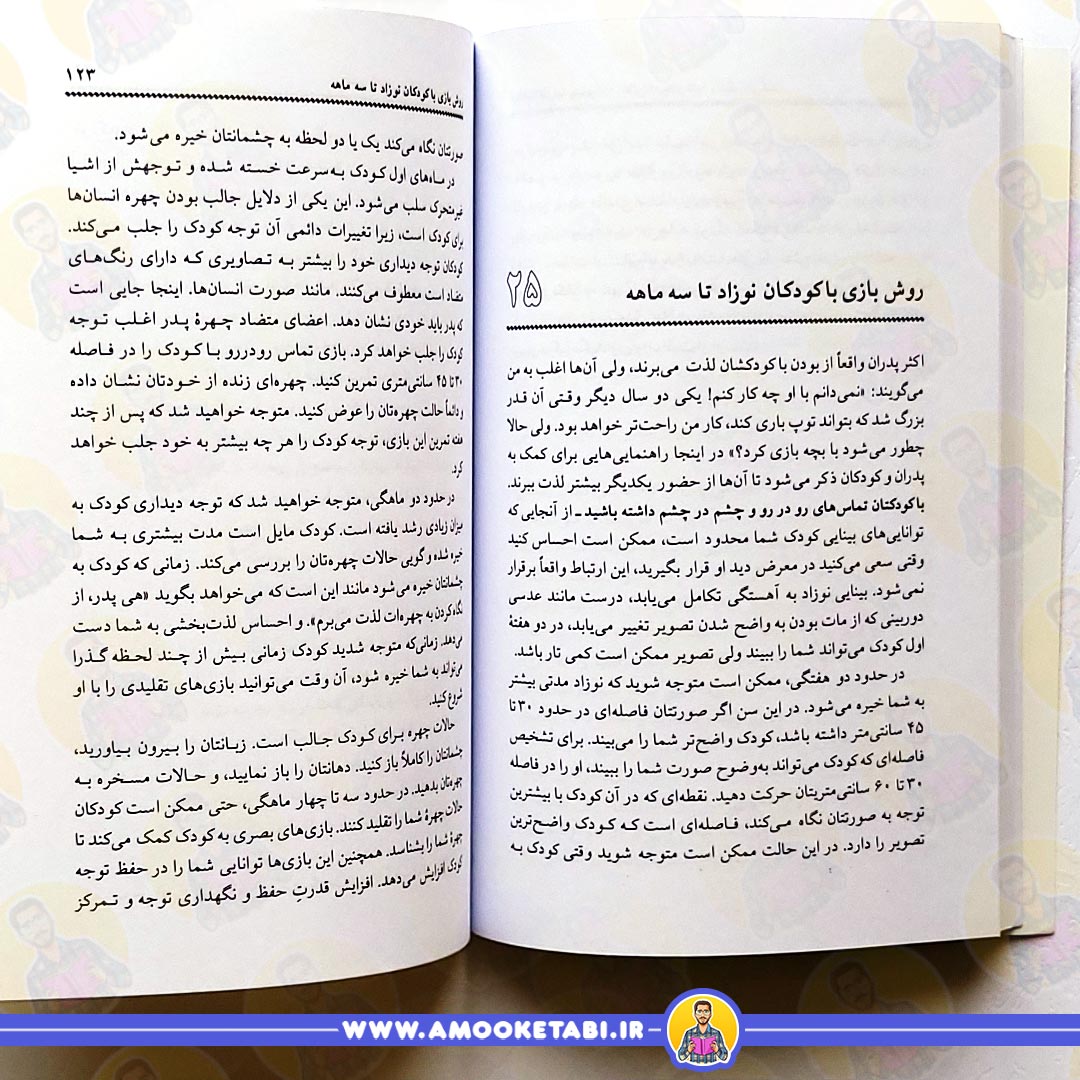 روش بازی با کودکان نوزاد تا سه ماهه ۲۵
اکثر پدران واقعاً از بودن با کودکشان لذت می‌برند، ولی آن‌ها اغلب به من
می‌گویند: «نمی‌دانم با او چه کار کنم! یکی دو سال دیگر وقتی آن قدر
بزرگ شد که بتواند توپ بازی کند، کار من راحت‌تر خواهد بود. ولی حالا
چطور می‌شود با بچه بازی کرد؟» در اینجا راهنمایی‌هایی برای کمک به
پدران و کودکان ذکر می‌شود تا آن‌ها از حضور یکدیگر بیشتر لذت ببرند.
با کودکتان تماس‌های رو در رو و چشم در چشم داشته باشید ـ از آنجایی که
توانایی‌های بینایی کودک شما محدود است، ممکن است احساس کنید
وقتی سعی می‌کنید در معرض دید او قرار بگیرید، این ارتباط واقعاً برقرار
نمی‌شود. بینایی نوزاد به آهستگی تکامل می‌یابد، درست مانند عدسی
دوربینی که از مات بودن به واضح شدن تصویر تغییر می‌یابد، در دو هفتهٔ
اول کودک می‌تواند شما را ببیند ولی تصویر ممکن است کمی تار باشد.
در حدود دو هفتگی، ممکن است متوجه شوید که نوزاد مدتی بیشتر
به شما خیره می‌شود. در این سن اگر صورتتان فاصله‌ای در حدود ۳۰ تا
۴۵ سانتی‌متر داشته باشد، کودک واضح‌تر شما را می‌بیند. برای تشخیص
فاصله‌ای که کودک می‌تواند به‌وضوح صورت شما را ببیند، او را در فاصله
۳۰ تا ۶۰ سانتی‌متریتان حرکت دهید. نقطه‌ای که در آن کودک با بیشترین
توجه به صورتتان نگاه می‌کند، فاصله‌ای است که کودک واضح‌ترین
تصویر را دارد. در این حالت ممکن است متوجه شوید وقتی کودک به
روش بازی با کودکان نوزاد تا سه ماهه ۱۲۳
صورتتان نگاه می‌کند یک یا دو لحظه به چشمانتان خیره می‌شود.
در ماه‌های اول کودک به‌سرعت خسته شده و توجهش از اشیا
غیرمتحرک سلب می‌شود. این یکی از دلایل جالب بودن چهره انسان‌ها
برای کودک است، زیرا تغییرات دائمی آن توجه کودک را جلب می‌کند.
کودکان توجه دیداری خود را بیشتر به تصاویری که دارای رنگ‌های
متضاد است معطوف می‌کنند. مانند صورت انسان‌ها. اینجا جایی است
که پدر باید خودی نشان دهد. اعضای متضاد چهرهٔ پدر اغلب توجه
کودک را جلب خواهد کرد. بازی تماس رودررو با کودک را در فاصله
۳۰ تا ۴۵ سانتی‌متری تمرین کنید. چهره‌ای زنده از خودتان نشان داده
و دائماً حالت چهره‌تان را عوض کنید. متوجه خواهید شد که پس از چند
هفته تمرین این بازی، توجه کودک را هر چه بیشتر به خود جلب خواهد
کرد.
در حدود دو ماهگی، متوجه خواهید شد که توجه دیداری کودک به
میزان زیادی رشد یافته است. کودک مایل است مدت بیشتری به شما
خیره شده و گویی حالات چهره‌تان را بررسی می‌کند. زمانی که کودک به
چشمانتان خیره می‌شود مانند این است که می‌خواهد بگوید «هی پدر، از
نگاه کردن به چهره‌ات لذت می‌برم». و احساس لذت‌بخشی به شما دست
می‌دهد. زمانی‌که متوجه شدید کودک زمانی بیش از چند لحظه گذرا
می‌تواند به شما خیره شود، آن وقت می‌توانید بازی‌های تقلیدی را با او
شروع کنید.
حالات چهره برای کودک جالب است. زبانتان را بیرون بیاورید،
چشمانتان را کاملاً باز کنید. دهانتان را باز نمایید، و حالات مسخره به
چهره‌تان بدهید. در حدود سه تا چهار ماهگی، حتی ممکن است کودکان
حالات چهرهٔ شما را تقلید کنند. بازی‌های بصری به کودک کمک می‌کند تا
چهرهٔ شما را بشناسد. همچنین این بازی‌ها توانایی شما را در حفظ توجه
کودک افزایش می‌دهد. افزایش قدرتِ حفظ و نگهداری توجه و تمرکز
WWW.AMOOKETABI.IR